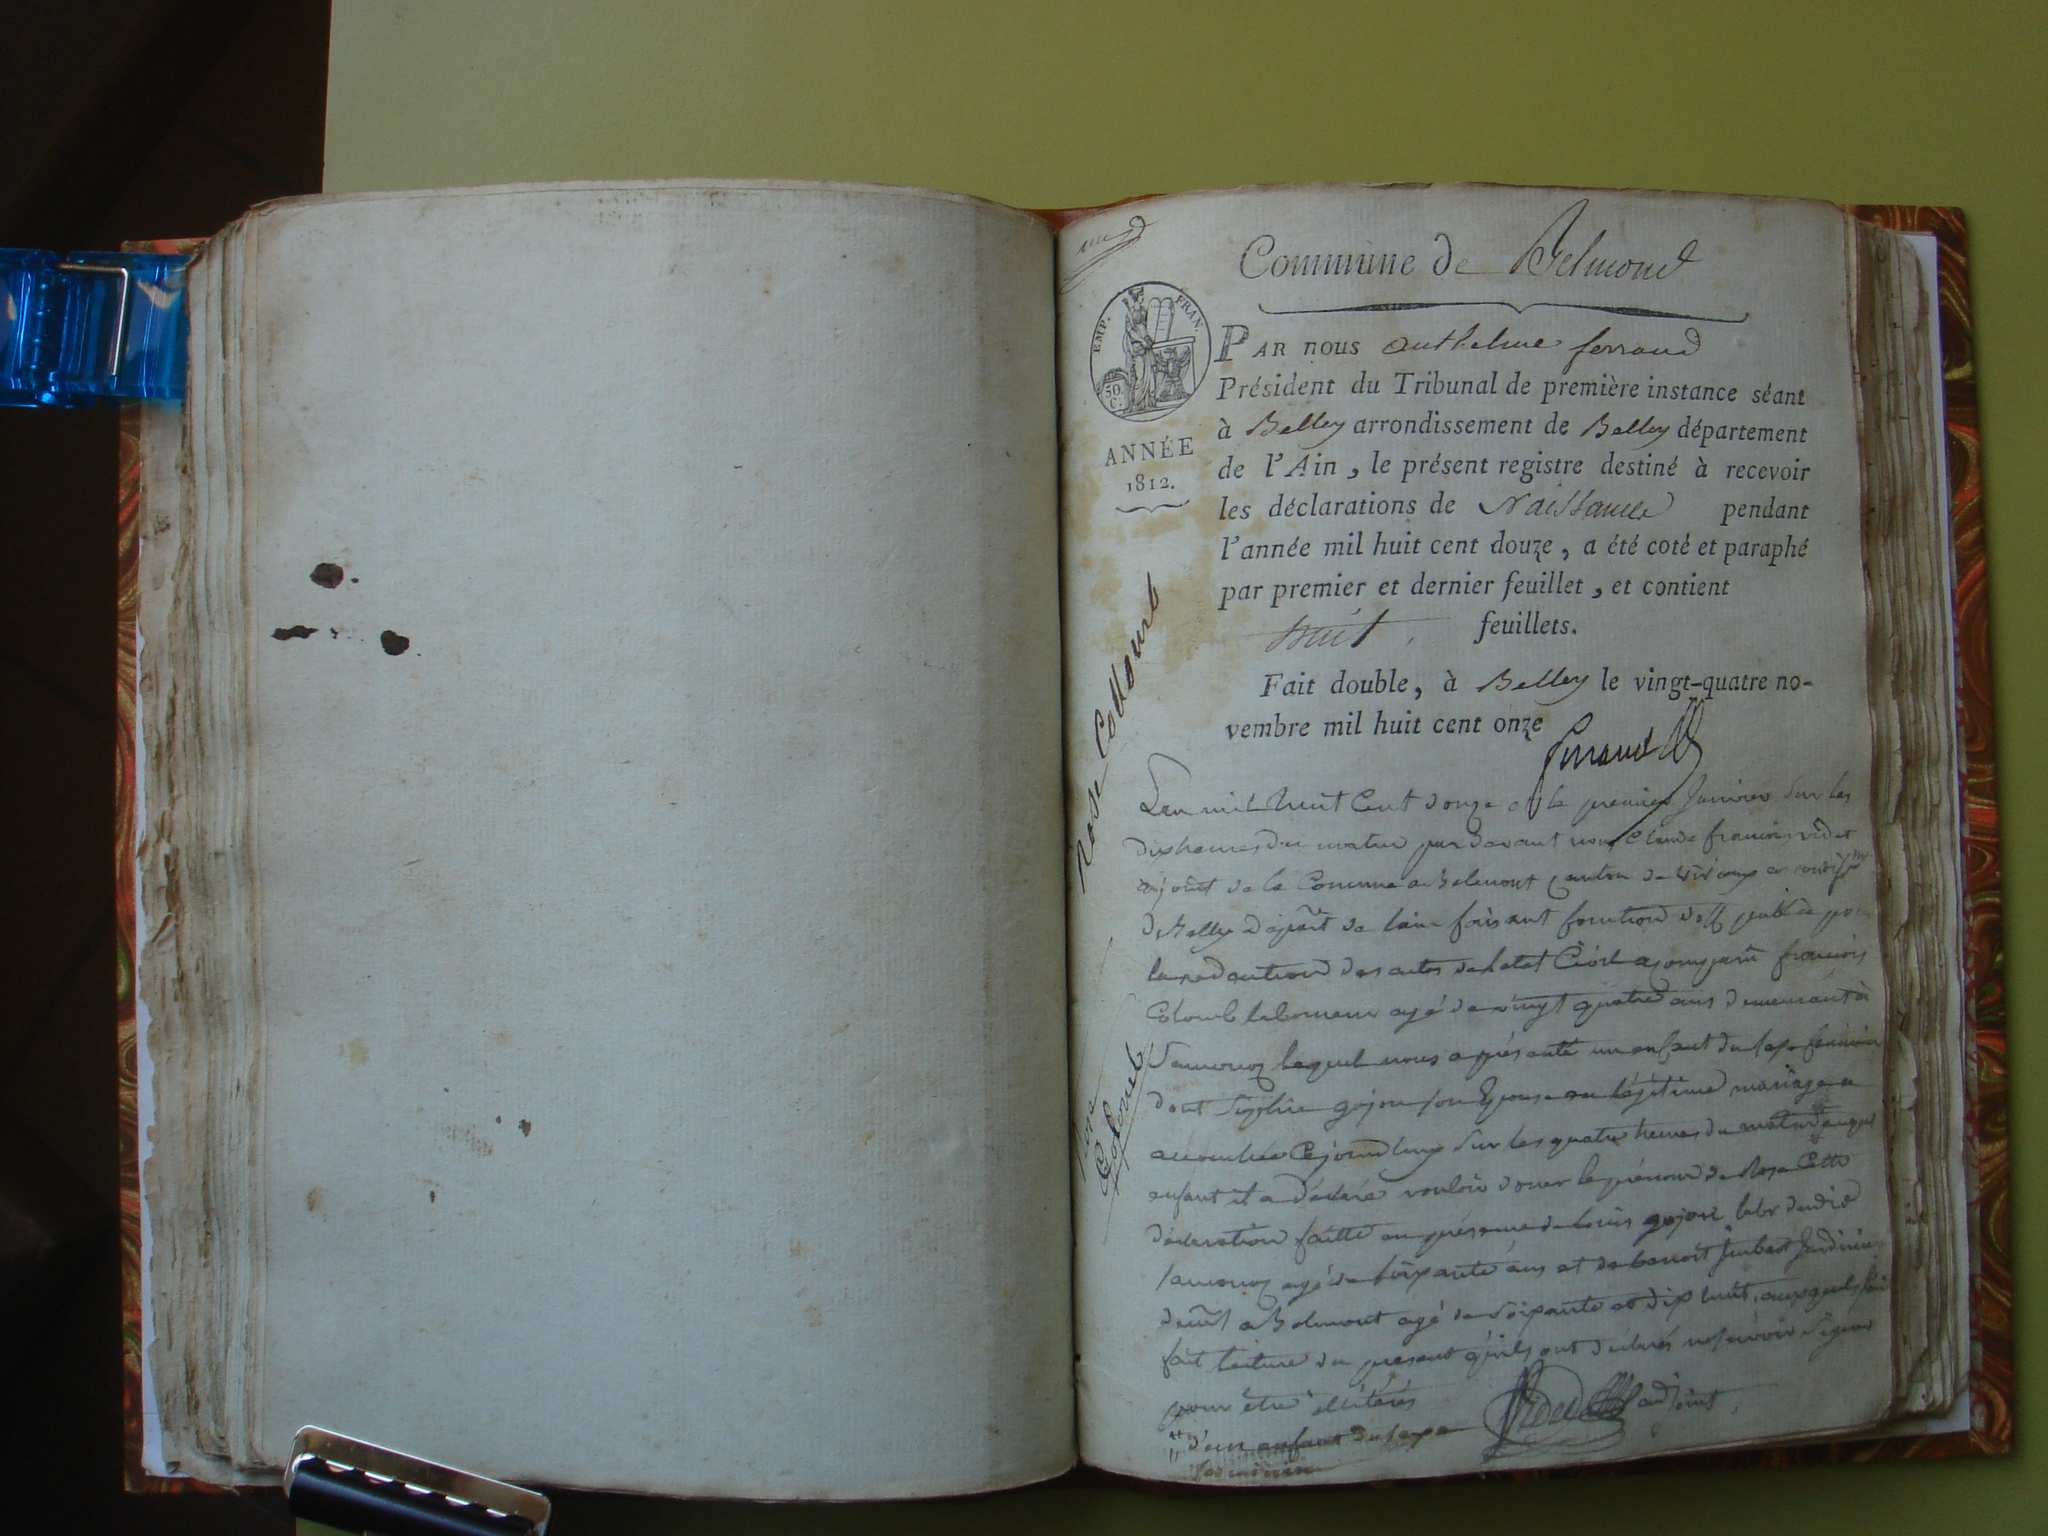 Commune de Belmond
EMP. FRAN.
50. C.
ANNÉE
1812.
PAR nous Anthelme ferrand
Président du Tribunal de première instance séant
à Belley arrondissement de Belley département
de l'Ain, le présent registre destiné à recevoir
les déclarations de Naissance pendant
l'année mil huit cent douze, a été coté et paraphé
par premier et dernier feuillet, et contient
huit feuillets.
Fait double, à Belley le vingt-quatre no-
vembre mil huit cent onze
ferrand
Rose Collomb
Rose
Colomb
Lan mil huit Cent douze et le premier Janvier sur les
dix heures du matin par devant nous Claude francois videt
adjoint de la Commune de Belmont canton de
de Belley depart de lain faisant fonction doff public pour
la redaction des actes de letat Civil a comparu francois
Colomb laboureur agé de vingt quatre ans demeurant à
lequel nous a présenté un enfant du sexe feminin
dont gojon son Epouse en légitime mariage a
accouchée Cejourdhuy sur les quatre heures du matin auquel
enfant il a déclaré vouloir doner le prénom de Rose Cette
déclaration faitte en présence de louis gojon labr dudit
agé de soixante ans et de benoit Jardinier
demt a Belmont agé de soixante et dix huit, auxquels jai
fait lecture du present quils ont declarés ne savoir signer
pour être illitérés
Videt adjoint
d'un enfant du sexe
feminin